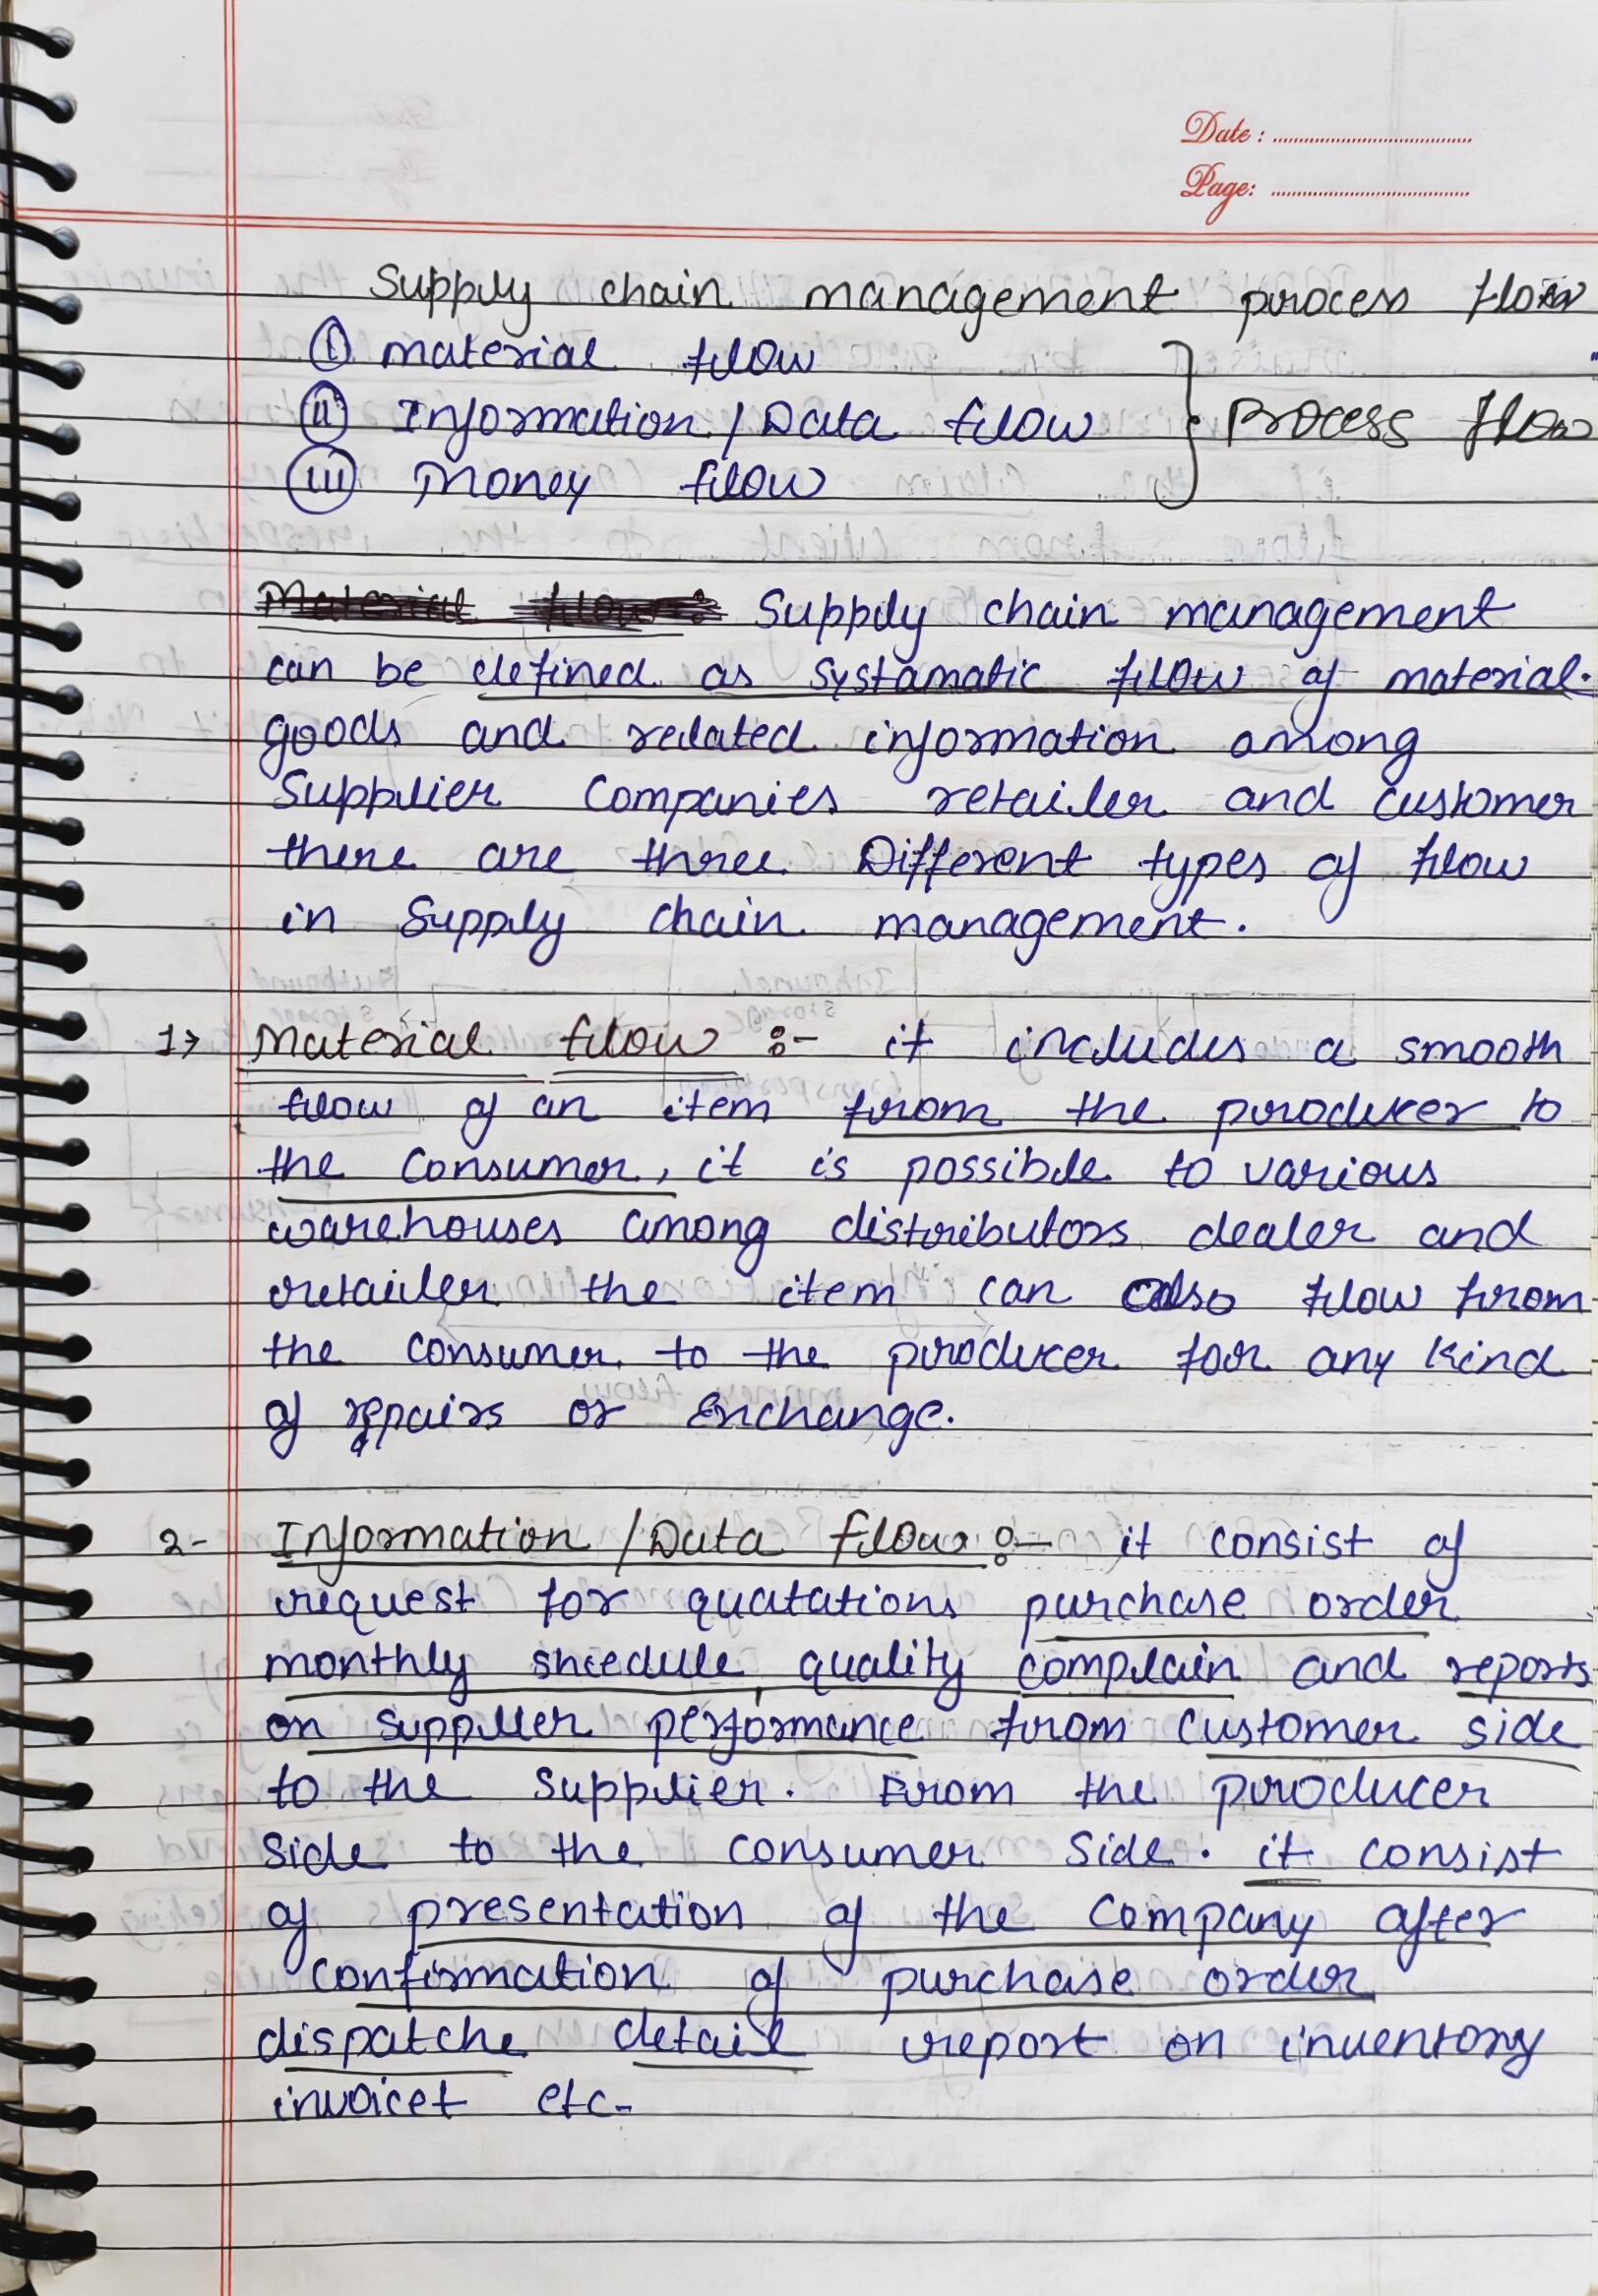 Date : ........................................
Page: ........................................
Supply chain management process flow
(i) material flow
(ii) Information / Data flow } Process flow
(iii) Money flow
Material flow : Supply chain management
can be defined as systamatic flow of material.
goods and related information among
Supplier Companies retailer and customer
there are three Different types of flow
in Supply chain management.
1> Material flow :- it includes a smooth
flow of an item from the producer to
the consumer, it is possible to various
warehouses among distributors dealer and
retailer the item can also flow from
the consumer to the producer for any kind
of repairs or Enchange.
2- Information / Data flow :- it consist of
request for quatations purchase order
monthly shcedule, quality complain and reports
on supplier performance from customer side
to the supplier. From the producer
side to the consumer side. it consist
of presentation of the company after
confirmation of purchase order
dispatche detail report on inventory
invoicet etc-